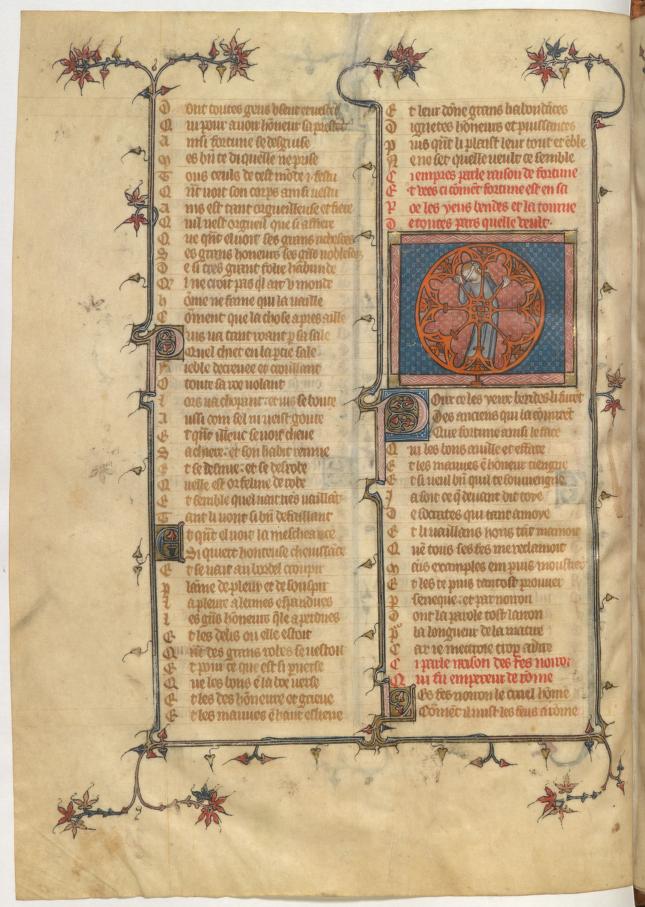 D ont toutes gens usent et vestent
Q ui pour avoir hōneur sa prestent
A insi fortune se desguise
M es bn̄ te di quelle ne prise
T ous ceuls de cest mōde .i. festu
Q n̄t voit son corps ainsi vestu
A ins est tant orgueilleuse et fiere
Q uil nest orgueil que si affiere
Q ue qn̄t el voit ses grans richesces
S es grans honeurs ses gn̄s noblesces
D e si tres grant folie habunde
Q l ne croit pas ql ait v monde
h ōme ne feme qui la vaille
C ōment que la chose apres aille
Puis va tant roant p sa sale
Quel chiet en la ptie sale
F ieble decrevee et croullant
O toute sa roe volant
L ors va chopant et ius se boute
A ussi com sel ni veist goute
E t qn̄t illeuc se voit cheue
S a chiere et son habit remue
E t se desnue et se desrobe
Q uelle est orfeline de robe
E t semble quel nait riēs vaillāt
T ant li vont si bn̄ defaillant
Et qn̄t el voit la mescheance
Si quiert honteuse chevissāce
E t se vait au bordel cropir
P laine de pleur et de souspir
L a pleure a lermes espandues
L es gn̄s hōneurs qle a perdues
E t les delis ou elle estoit
Q n̄t des grans robes se vestoit
E t pour ce que est si pverse
Q ue les bons ē la boe verse
E t les des hōneure et grieve
E t les mauves ē haut eslieve
E t leur dōne grans habondāces
D ignetes hōneurs et puissances
P uis qn̄t li plaist leur tout et ēble
N e ne set quelle veult ce semble
C i empres parle raison de fortune
E t vees ci cōmēt fortune est en sa
R oe les yeus bendes et la tourne
D e toutes pars quelle veult.
Pour ce les yeux bendes li furēt
Des anciens qui la cōnurēt
Que fortune ainsi le face
Q ui les bons avile et efface
E t les mauves ē hōneur tiengne
E t si veul bn̄ quil te souviengne
J a soit ce q̄ devant dit toye
D e socrates qui tant amoye
E t li vaillans hons tāt mamoit
Q uē tous ses fes me reclamoit
M ains examples em puis moustrer
E t les te puis tantost prouver
P seneque et par noiron
D ont la parole tost lairon
P la longueur de la matire
C ar ie metroie trop a dire
C i parle raison des fes noirō
Q ui fu empereur de rōme
Les fes noiron le cruel hōme
Cōmēt il mist les feus a rōme